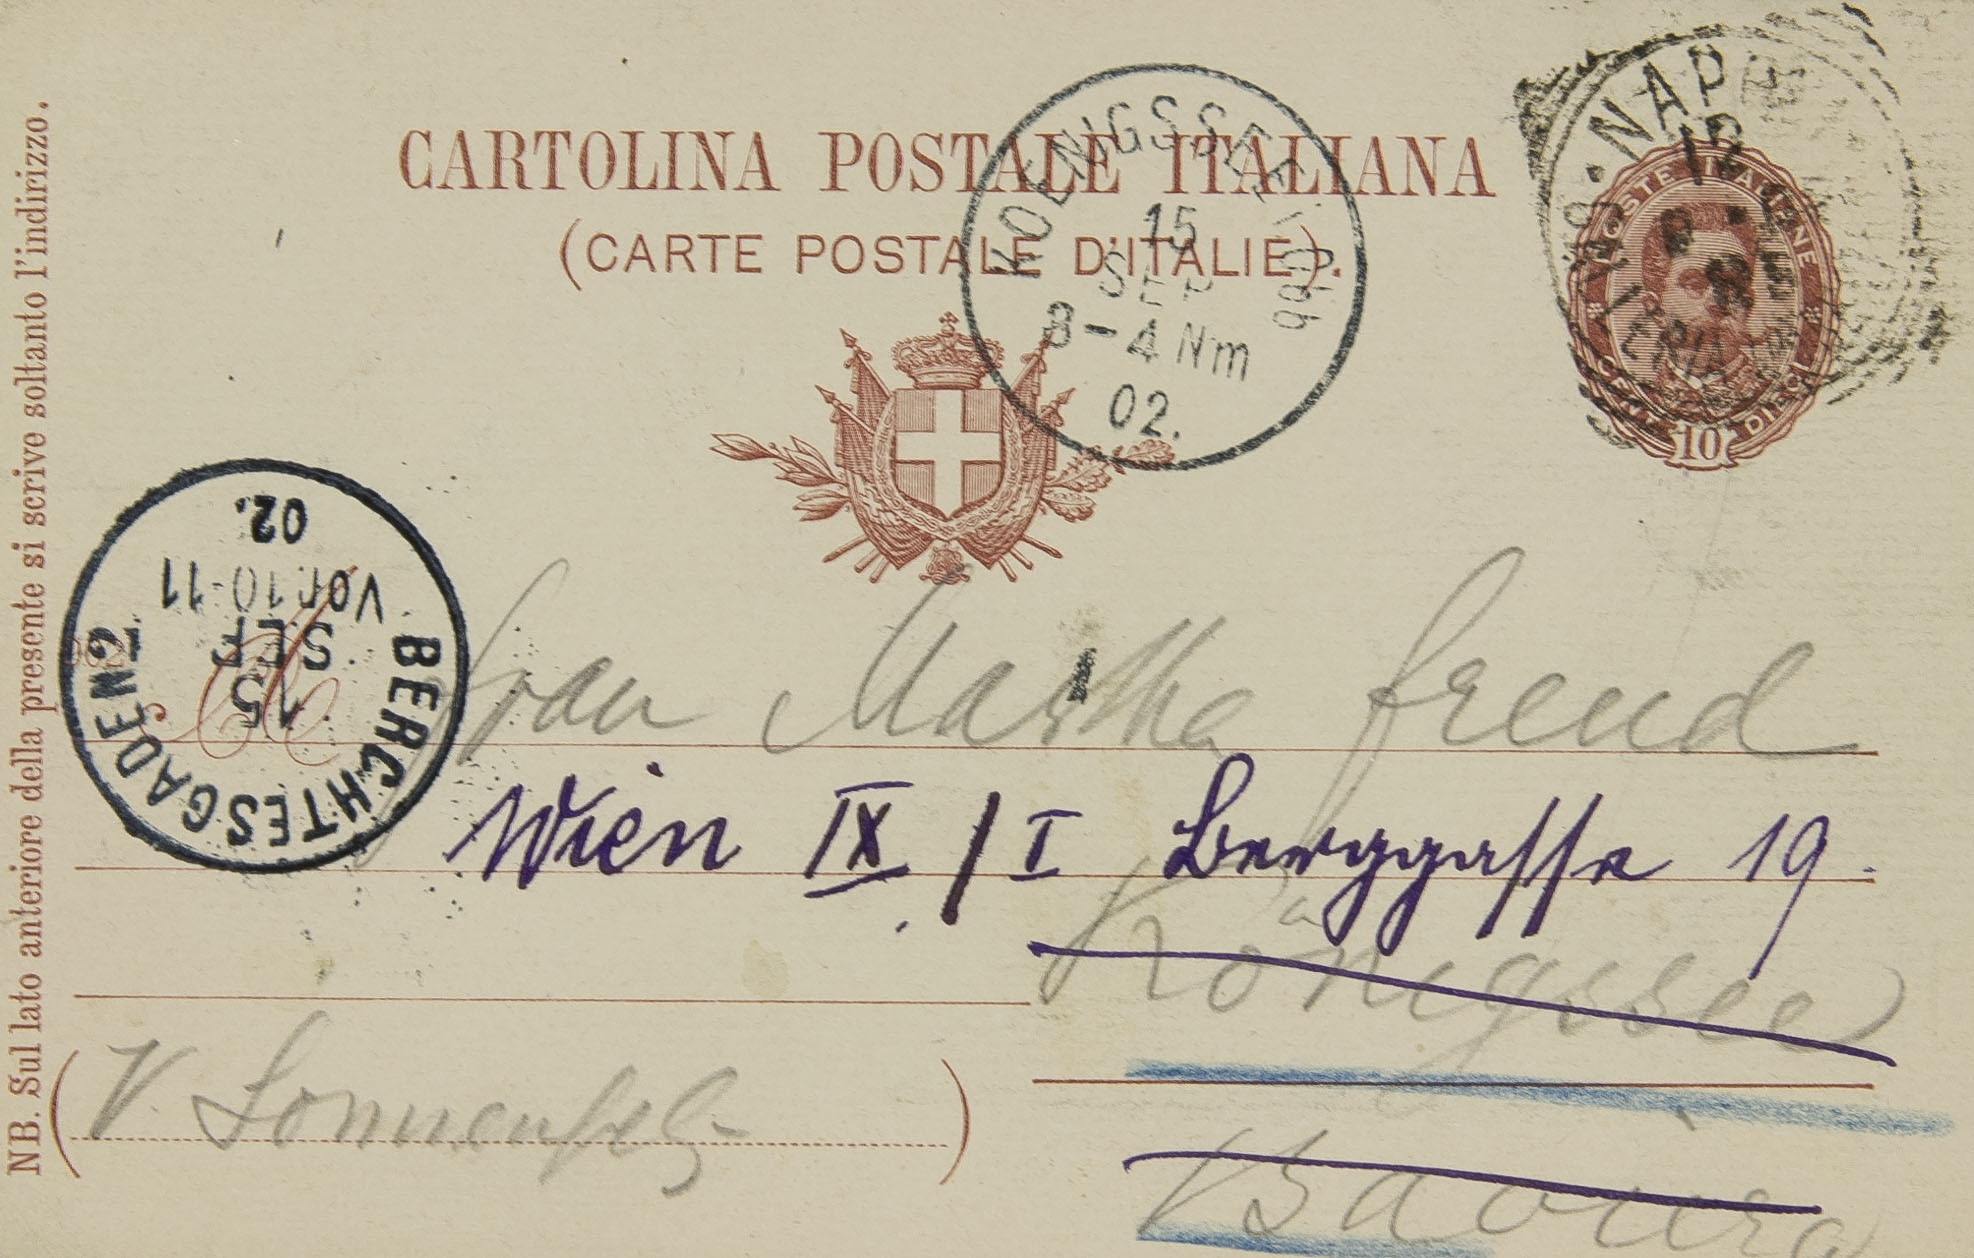 CARTOLINA POSTALE ITALIANA
(CARTE POSTALE D'ITALIE).
NB. Sul lato anteriore della presente si scrive soltanto l'indirizzo.
KOENIGSSEE
15
SEP
3-4 Nm
02.
NAP
12
POSTE ITALIANE
CENT. 10 DIECI
BERCHTESGADEN 2
15
SEP
Vor. 10-11
02.
Frau Martha Freud
Wien IX / I Berggasse 19.
Königssee
V. Sonnenfels